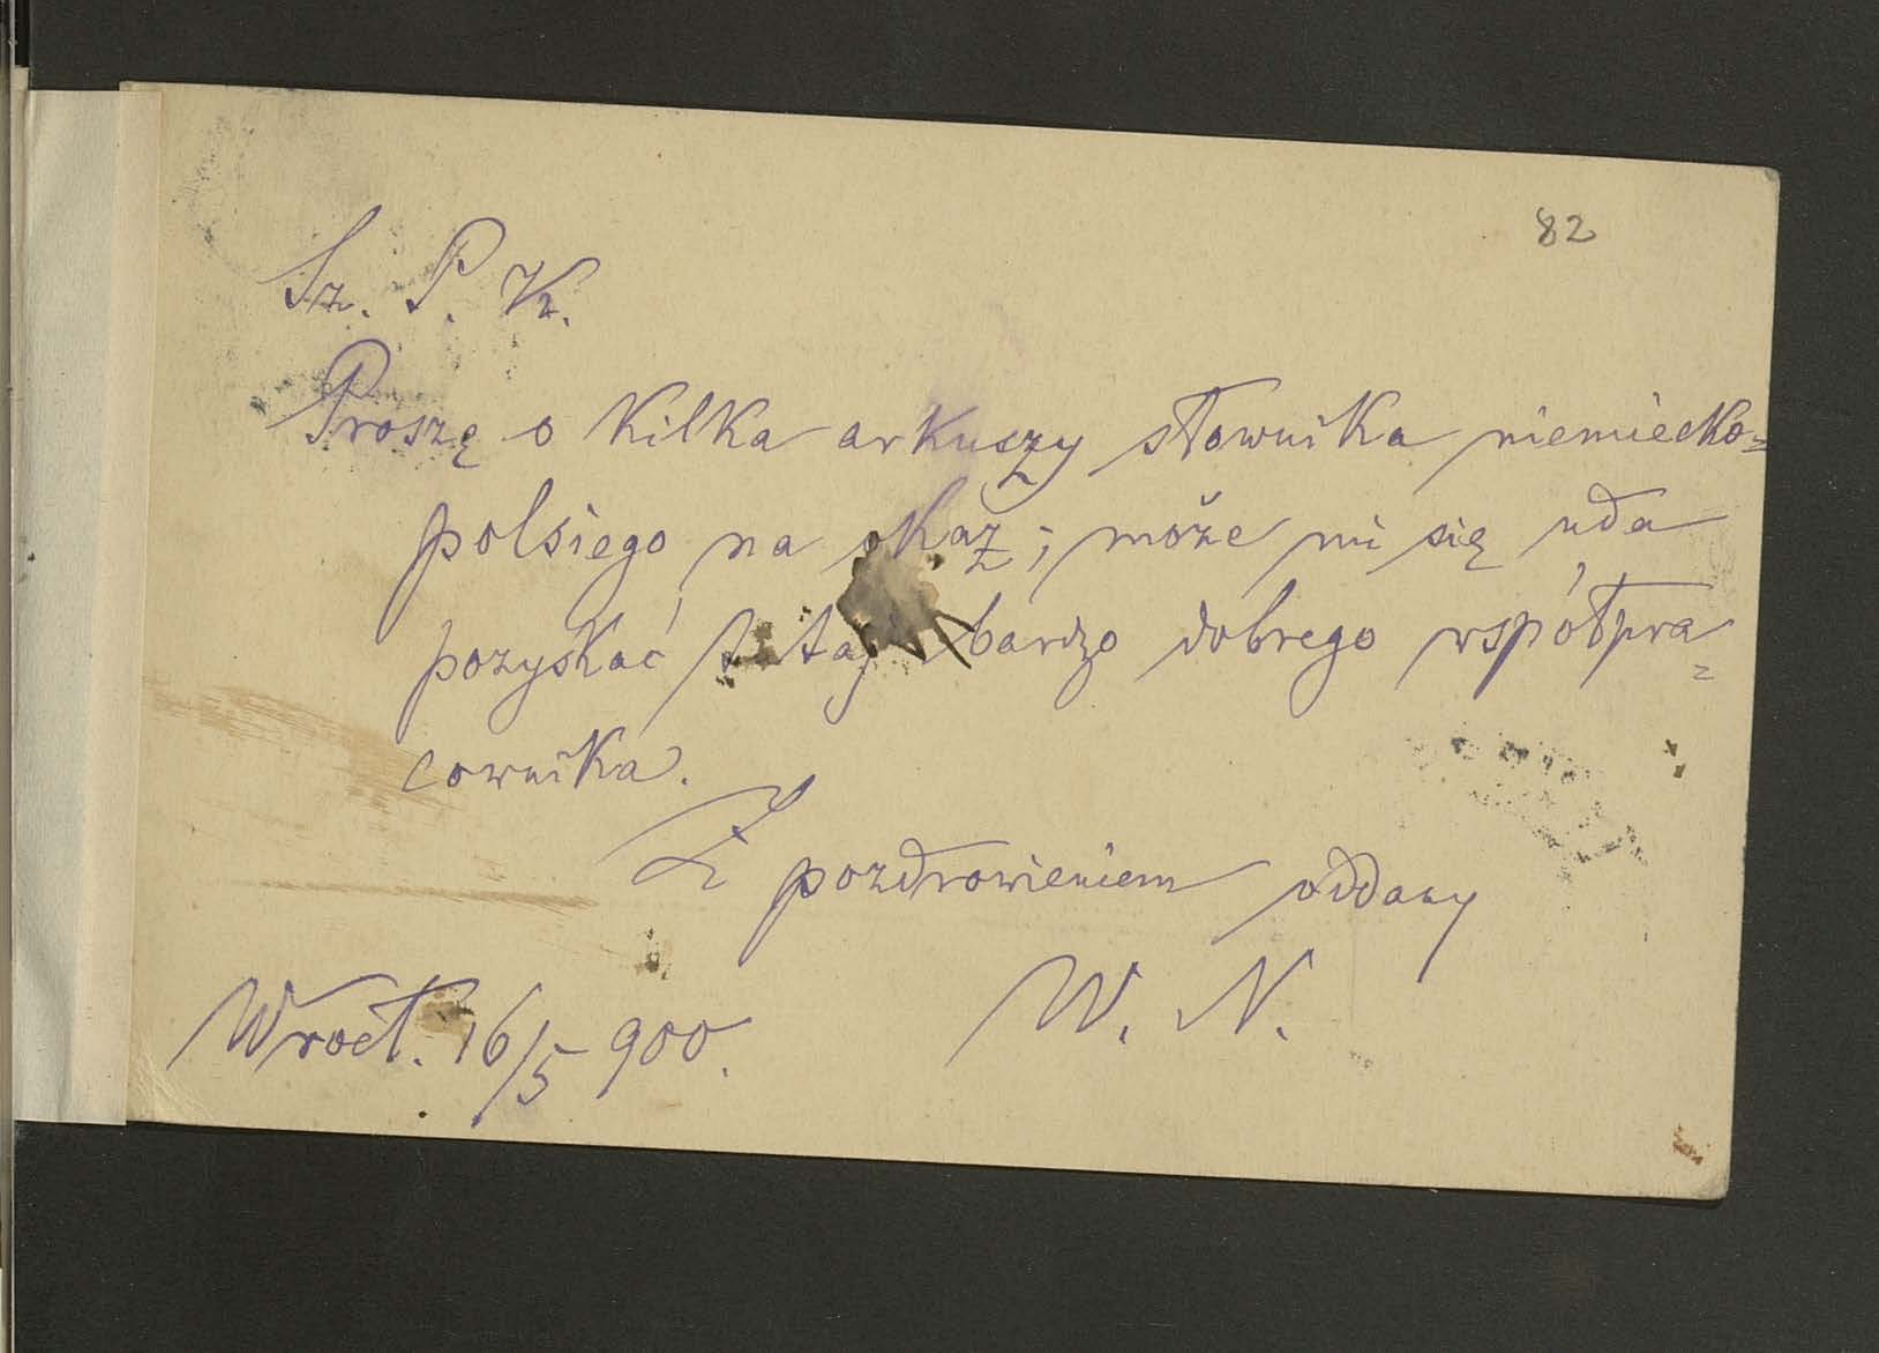 82
Sz. P. K.
Proszę o kilka arkuszy słownika niemiecko=
polsiego na okaz; może mi się uda
pozyskać tutaj bardzo dobrego współpra=
cownika.
Z pozdrowieniem oddany
W. N.
Wrocł. 16/5 900.